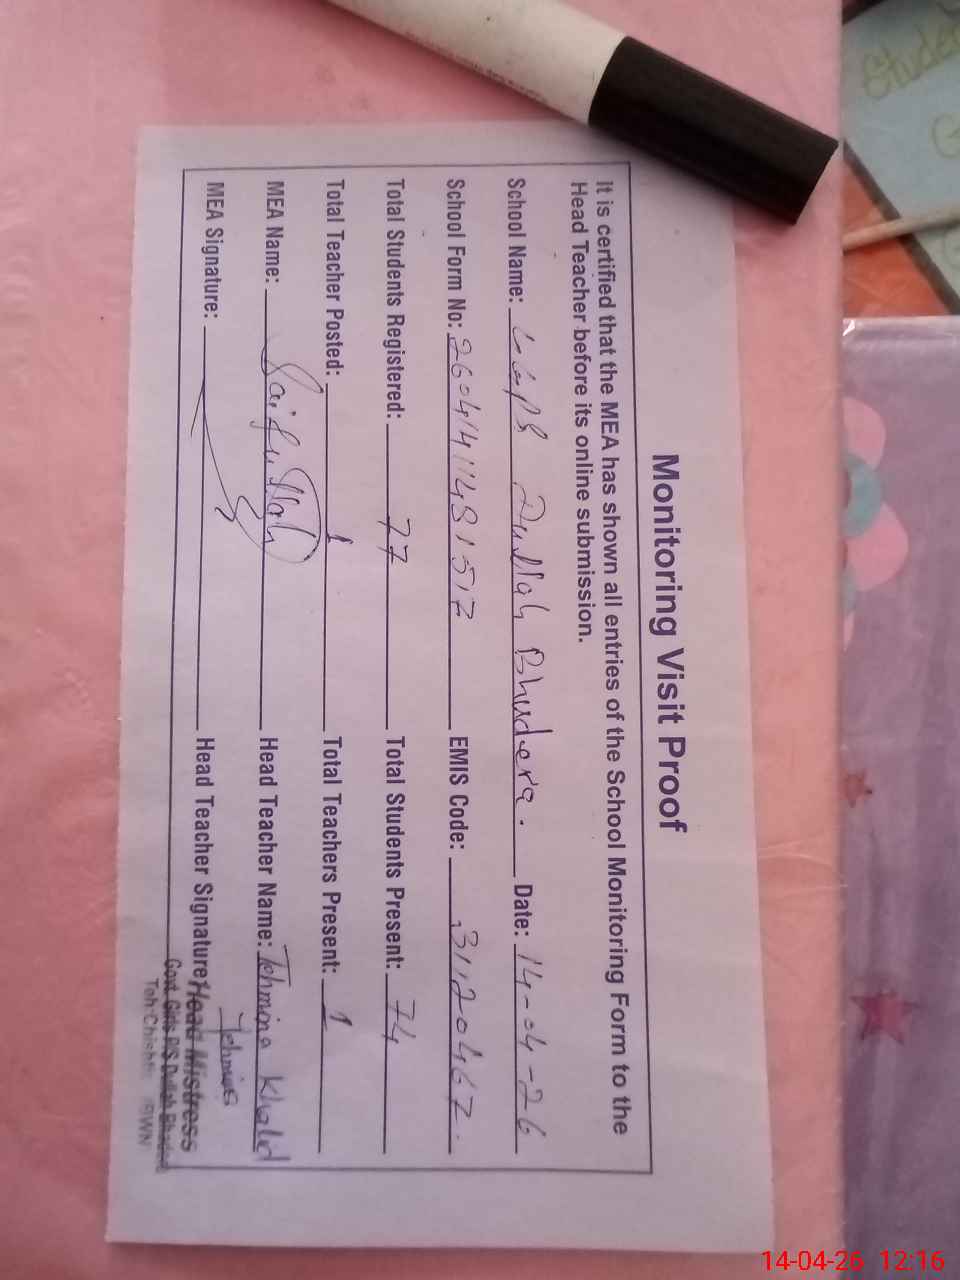 Monitoring Visit Proof
It is certified that the MEA has shown all entries of the School Monitoring Form to the
Head Teacher before its online submission.
School Name: GGPS Dullah Bhudera. Date: 14-04-26
School Form No: 26041411481517 EMIS Code: 31120467.
Total Students Registered: 77 Total Students Present: 74
Total Teacher Posted: 1 Total Teachers Present: 1
MEA Name: Saifullah Head Teacher Name: Tehmina Khalid
MEA Signature: Head Teacher Signature: Tehmina
Head Mistress
Govt. Girls P/S Dullah
Teh: Chishti
14-04-26 12:16